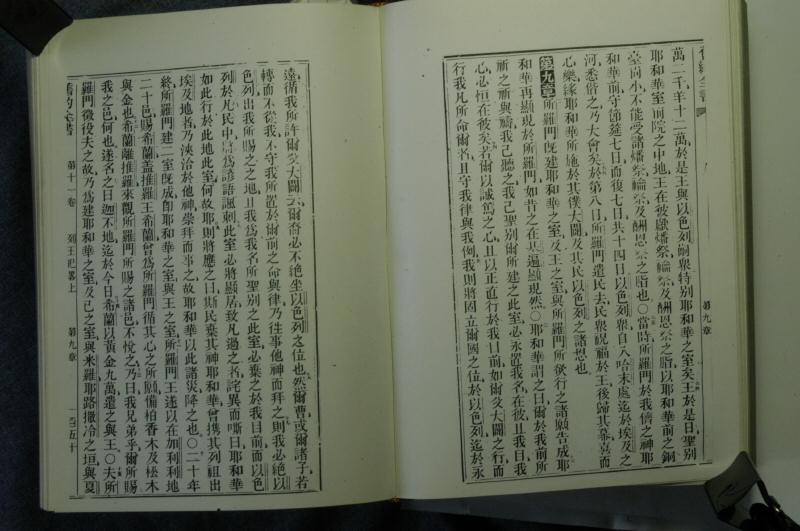 第九章
萬二千羊十二萬於是王與以色列衆特別耶和華之室矣王於是日聖別
耶和華室前院之中地王在彼獻燔祭祭及酬恩祭之脂以耶和華前之銅
臺尚小不能受諸燔祭祭及酬恩祭之脂也○當時所羅門於我儕之神耶
和華前守節筵七日而復七日共十四日以色列衆自入哈末處迄於埃及之
河悉偕之乃大會矣於第八日所羅門遣民去民衆祝福於王後歸其幕喜而
心樂緣耶和華所施於其僕大闢及其民以色列之諸也
第九章所羅門旣建耶和華之室及王之室與所羅門所欲行之諸願告成耶
和華再顯現於所羅門如昔之在基遍顯現然○耶和華謂之曰爾於我前所
祈之祈與禱我己聽之我己聖別爾所建之此室必永置我名在彼且我目我
心必恒在彼矣若爾以誠篤之心且以正直行於我目前如爾父大闢之行而
行我凡所命爾者且守我律與我例我則將固立爾國之位於以色列迄於永
遠循我所許爾父大闢云爾裔必不絕坐以色列之位也然爾曹或爾諸子若
轉而不從我不守我所置於爾前之命與律乃往事他神而拜之則我必絕以
色列出我所賜之之地且我爲我名所聖別之此室必棄之於我目前而以色
列於凡民中將爲諺語譏刺此室必將顯居致凡過之者詫異而嘶曰耶和華
如此行於此地此室何故耶則將應之曰斯民棄其神耶和華曾携其列祖出
埃及地者乃浹洽於他神崇拜而事之故耶和華以此諸災降之也○二十年
終所羅門建二室旣成卽耶和華之室與王之室所羅門王遂以在加利利地
二十邑賜希蘭盖推羅王希蘭曾爲所羅門循其心之所願備柏香木及松木
與金也希蘭離推羅來觀所羅門所賜之諸邑不悅之乃曰我兄弟乎爾所賜
我之邑何也遂名之曰迦不地迄於今日希蘭以黃金九萬遣之與王○夫所
羅門徵役夫之故乃爲建耶和華之室及己之室與米羅耶路撒冷之垣與夏
舊約全書 第十一卷 列王紀畧上 第九章 一百五十